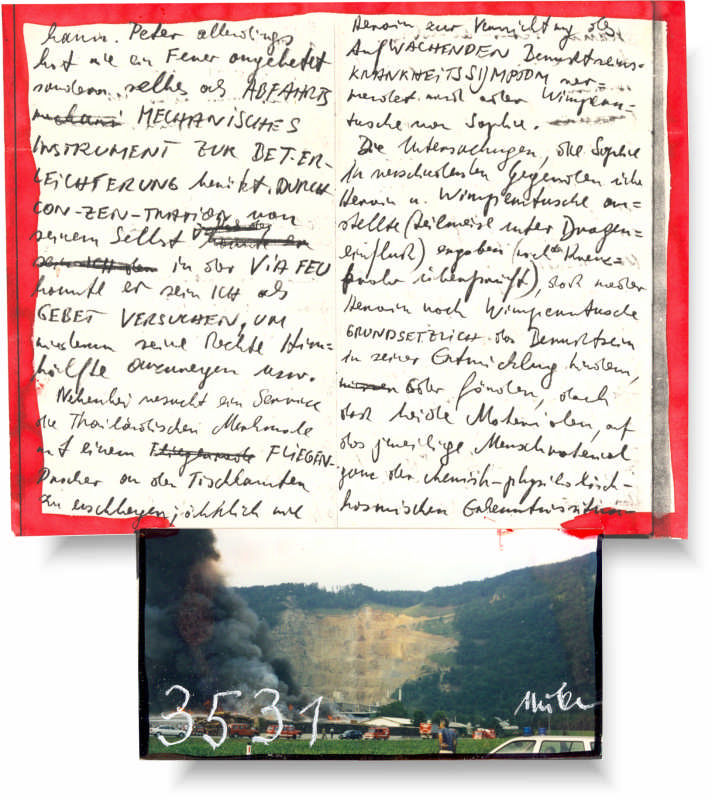 kann. Peter allerdings
hat nie ein Feuer angebetet
sondern selbes als ABFAHRTS
MECHANISCHES
INSTRUMENT ZUR BET.ER-
LEICHTERUNG benützt. DURCH
CON-ZEN-TRATION von
seinem Selbst
in der VIA FEU
konnte er sein ICH als
GEBET VERSUCHEN, UM
wiederum seine Rechte Hirn=
hälfte anzuregen usw.
Nebenbei versucht ein Service
die Thailändischen
mit einem FLIEGEN-
Pracker an den Tischkanten
zu erschlagen;
Heroin zur Vernichtung des
AufWACHENDEN Bewusstseins-
KRANKHEITSSYMPTOM ver-
wendet wird oder Wimpern-
tusche von Sophie.
Die Untersuchungen, die Sophie
in verschiedenen Gegenden über
Heroin u. Wimperntusche an=
stellte (teilweise unter Drogen=
einfluß) ergaben
, daß weder
Heroin noch Wimperntusche
GRUNDSETZLICH das Bewusstsein
in seiner Entwicklung hindern,
oder fördern, doch
daß beide Materialien, auf
das jeweilige Menschmaterial
ganz der chemisch-physikalisch-
kosmischen
3531